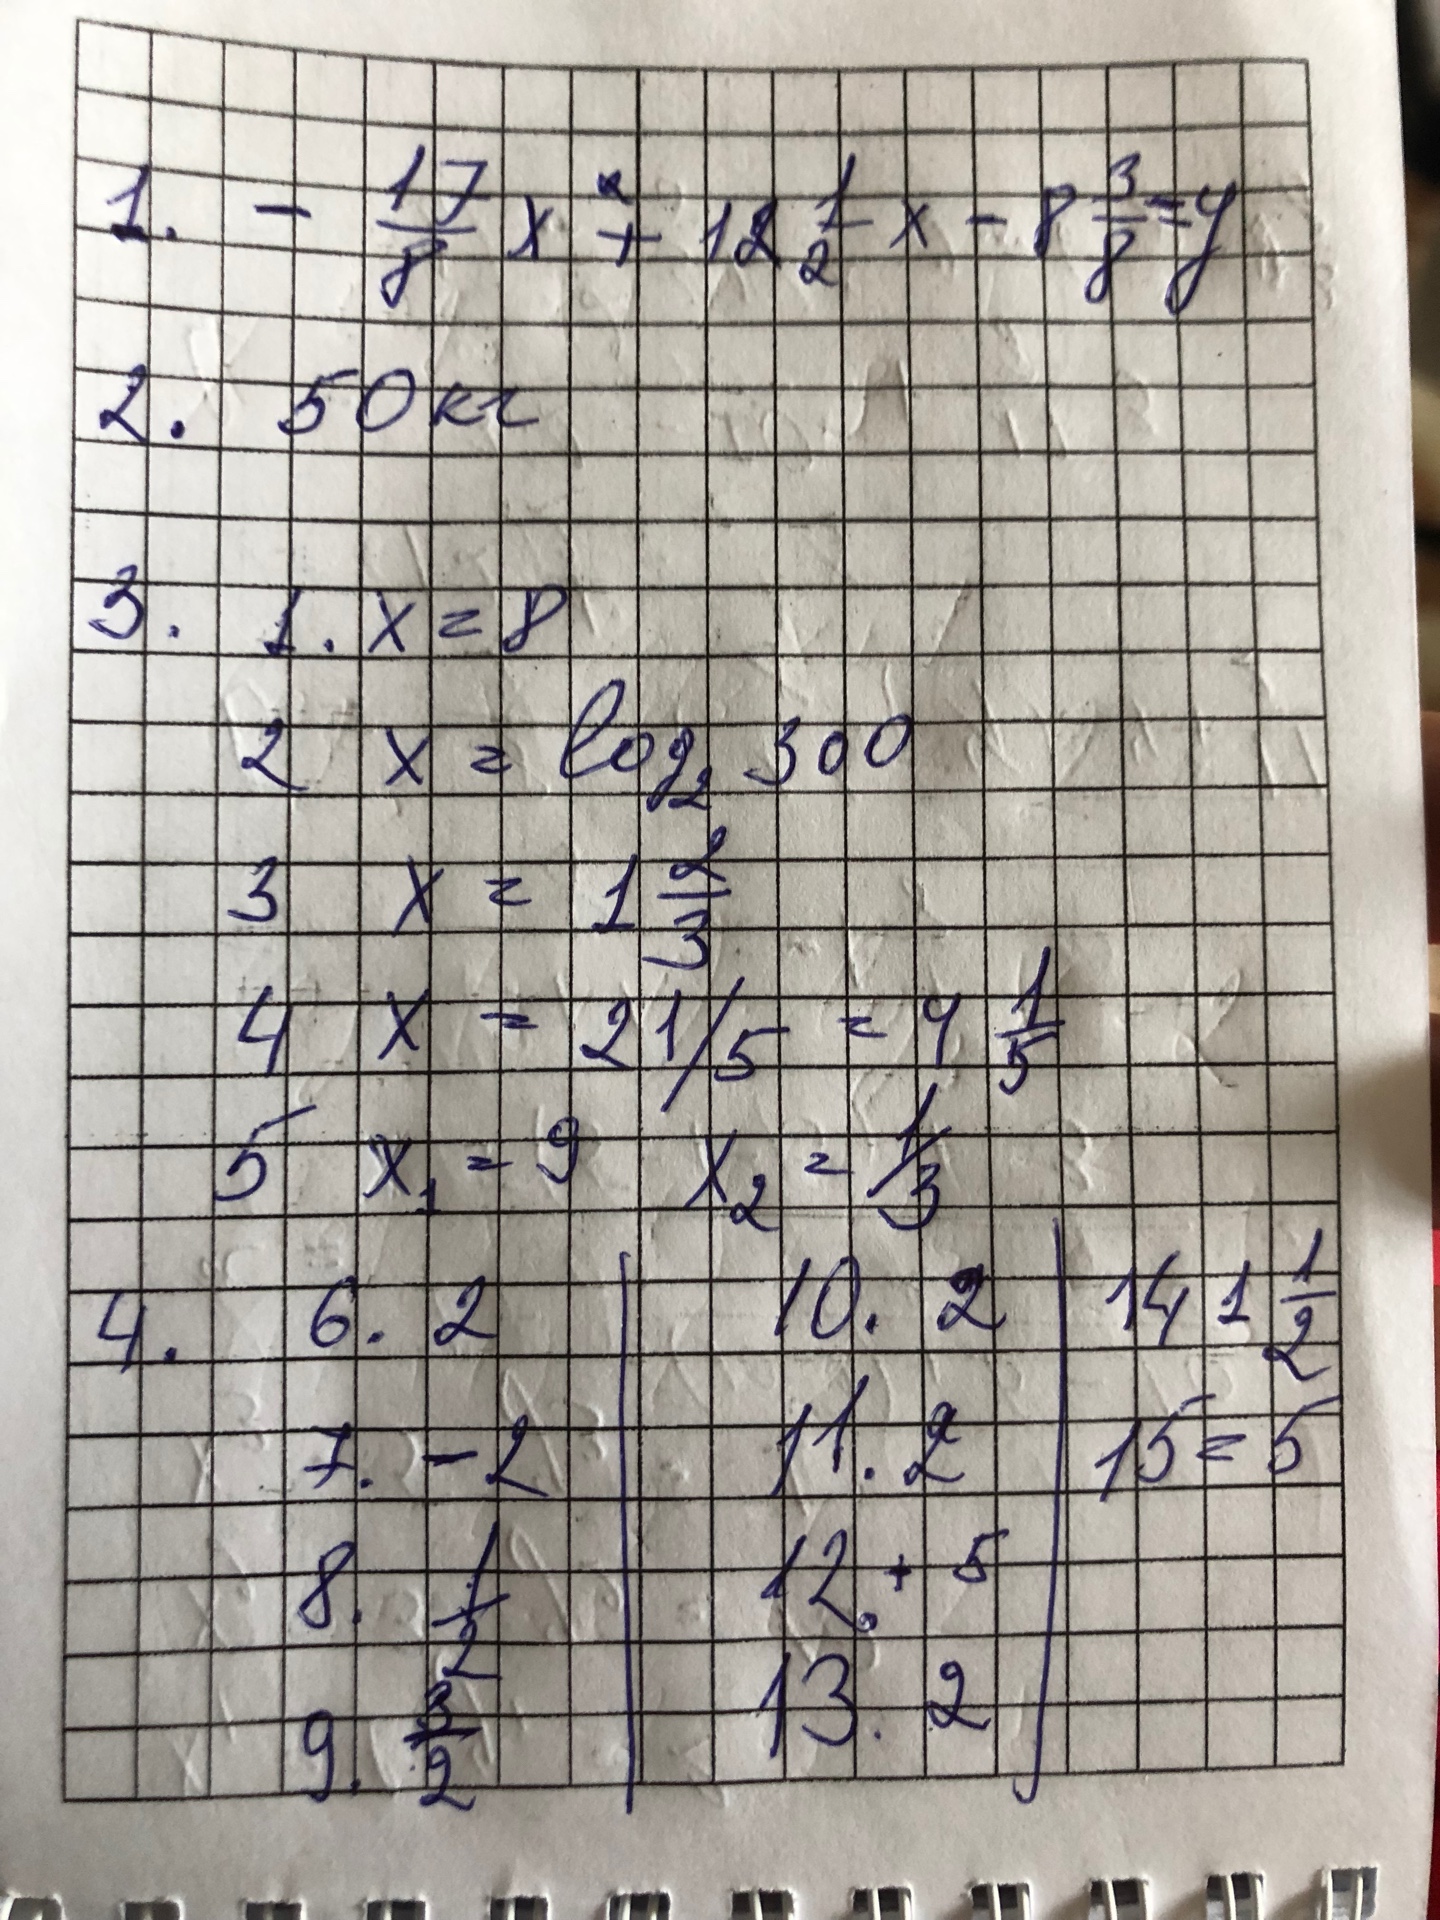 1. - 17/8 x² + 12 1/2 x - 8 3/8 = y
2. 50 кг
3. 1. x = 8
2 x = log₂ 300
3 x = 1 2/3
4 x = 21/5 = 4 1/5
5 x₁ = 9 x₂ = 1/3
4. 6. 2
7. - 2
8. 1/2
9. 3/2
10. 2
11. 2
12. + 5
13. 2
14 1 1/2
15 = 5